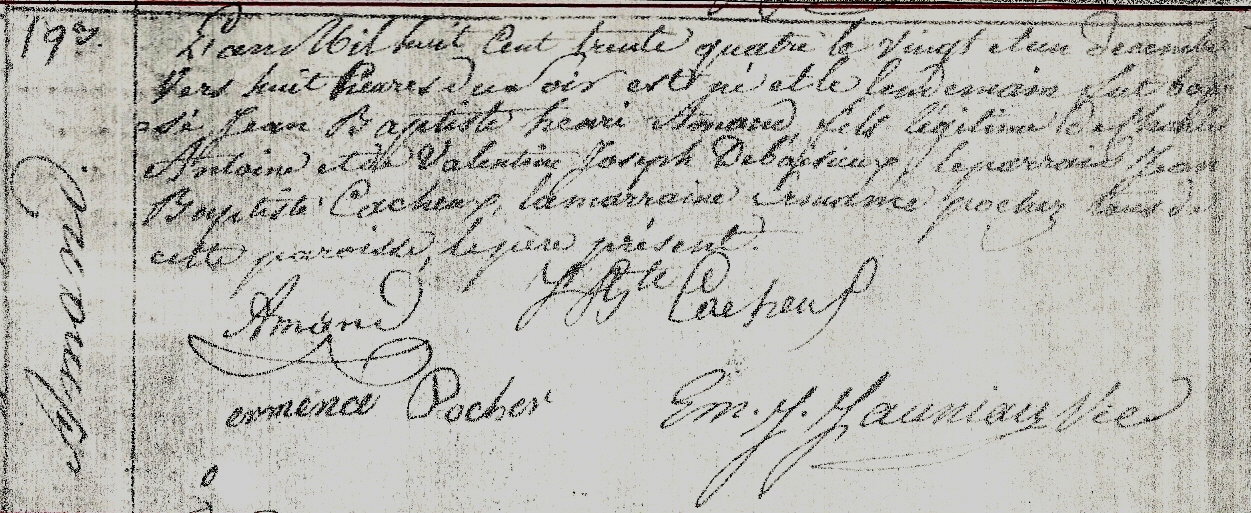 197.
Amand.
L'an Mil huit Cent trente quatre le vingt et un decembre
vers huit heures du soir est né et le lendemain fut bap-
=sé Jean Baptiste henri Amand, fils légitime de
Antoine et de Valentine Joseph Debaisieux, le parrain Jean
Baptiste Cacheux, la marraine pochez tous de
cette paroisse, le père présent.
Amand
J Bte Cacheux
ermence Pocher
Em. J. Jauniaux Vic